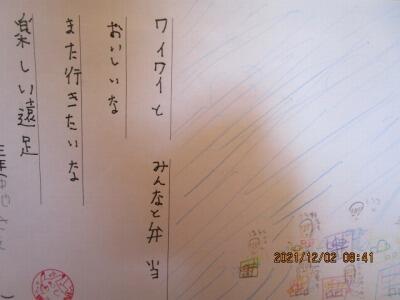 ワイワイと みんなと弁当
おいしいな
また行きたいな
楽しい遠足
三年
2021/12/02 08:41